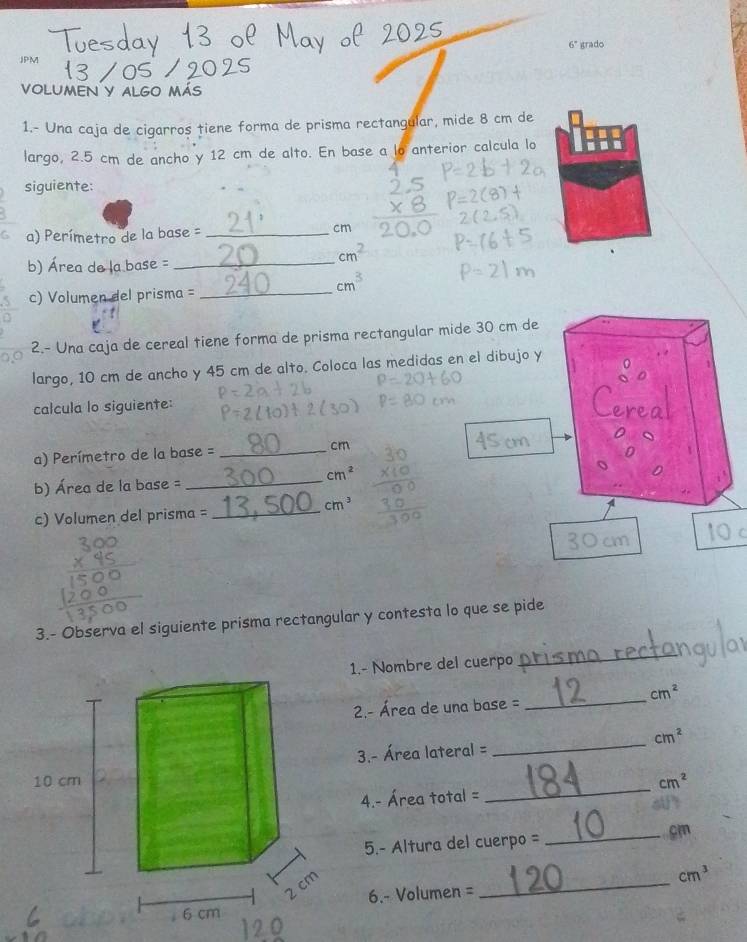 Tuesday 13 of May of 2025
6° grado
JPM
13/05/2025
VOLUMEN Y ALGO MÁS
1.- Una caja de cigarros tiene forma de prisma rectangular, mide 8 cm de
largo, 2.5 cm de ancho y 12 cm de alto. En base a lo anterior calcula lo
siguiente:
P=2b+2a
2.5
x 8
20.0
P=2(8)+
2(2.5)
P=16+5
P=21m
a) Perímetro de la base = 21 cm
b) Área de la base = 20 cm²
c) Volumen del prisma = 240 cm³
2.- Una caja de cereal tiene forma de prisma rectangular mide 30 cm de
largo, 10 cm de ancho y 45 cm de alto. Coloca las medidas en el dibujo y
calcula lo siguiente:
P=2a+2b
P=2(10)+2(30)
P=20+60
P=80 cm
Cereal
45 cm
30 cm
10 c
a) Perímetro de la base = 80 cm
b) Área de la base = 300 cm²
c) Volumen del prisma = 13,500 cm³
30
x10
00
30
300
300
x 45
1500
1200
13500
3.- Observa el siguiente prisma rectangular y contesta lo que se pide
1.- Nombre del cuerpo prisma rectangular
2.- Área de una base = 12 cm²
3.- Área lateral = cm²
4.- Área total = 184 cm²
5.- Altura del cuerpo = 10 cm
6.- Volumen = 120 cm³
10 cm
2 cm
6 cm
120